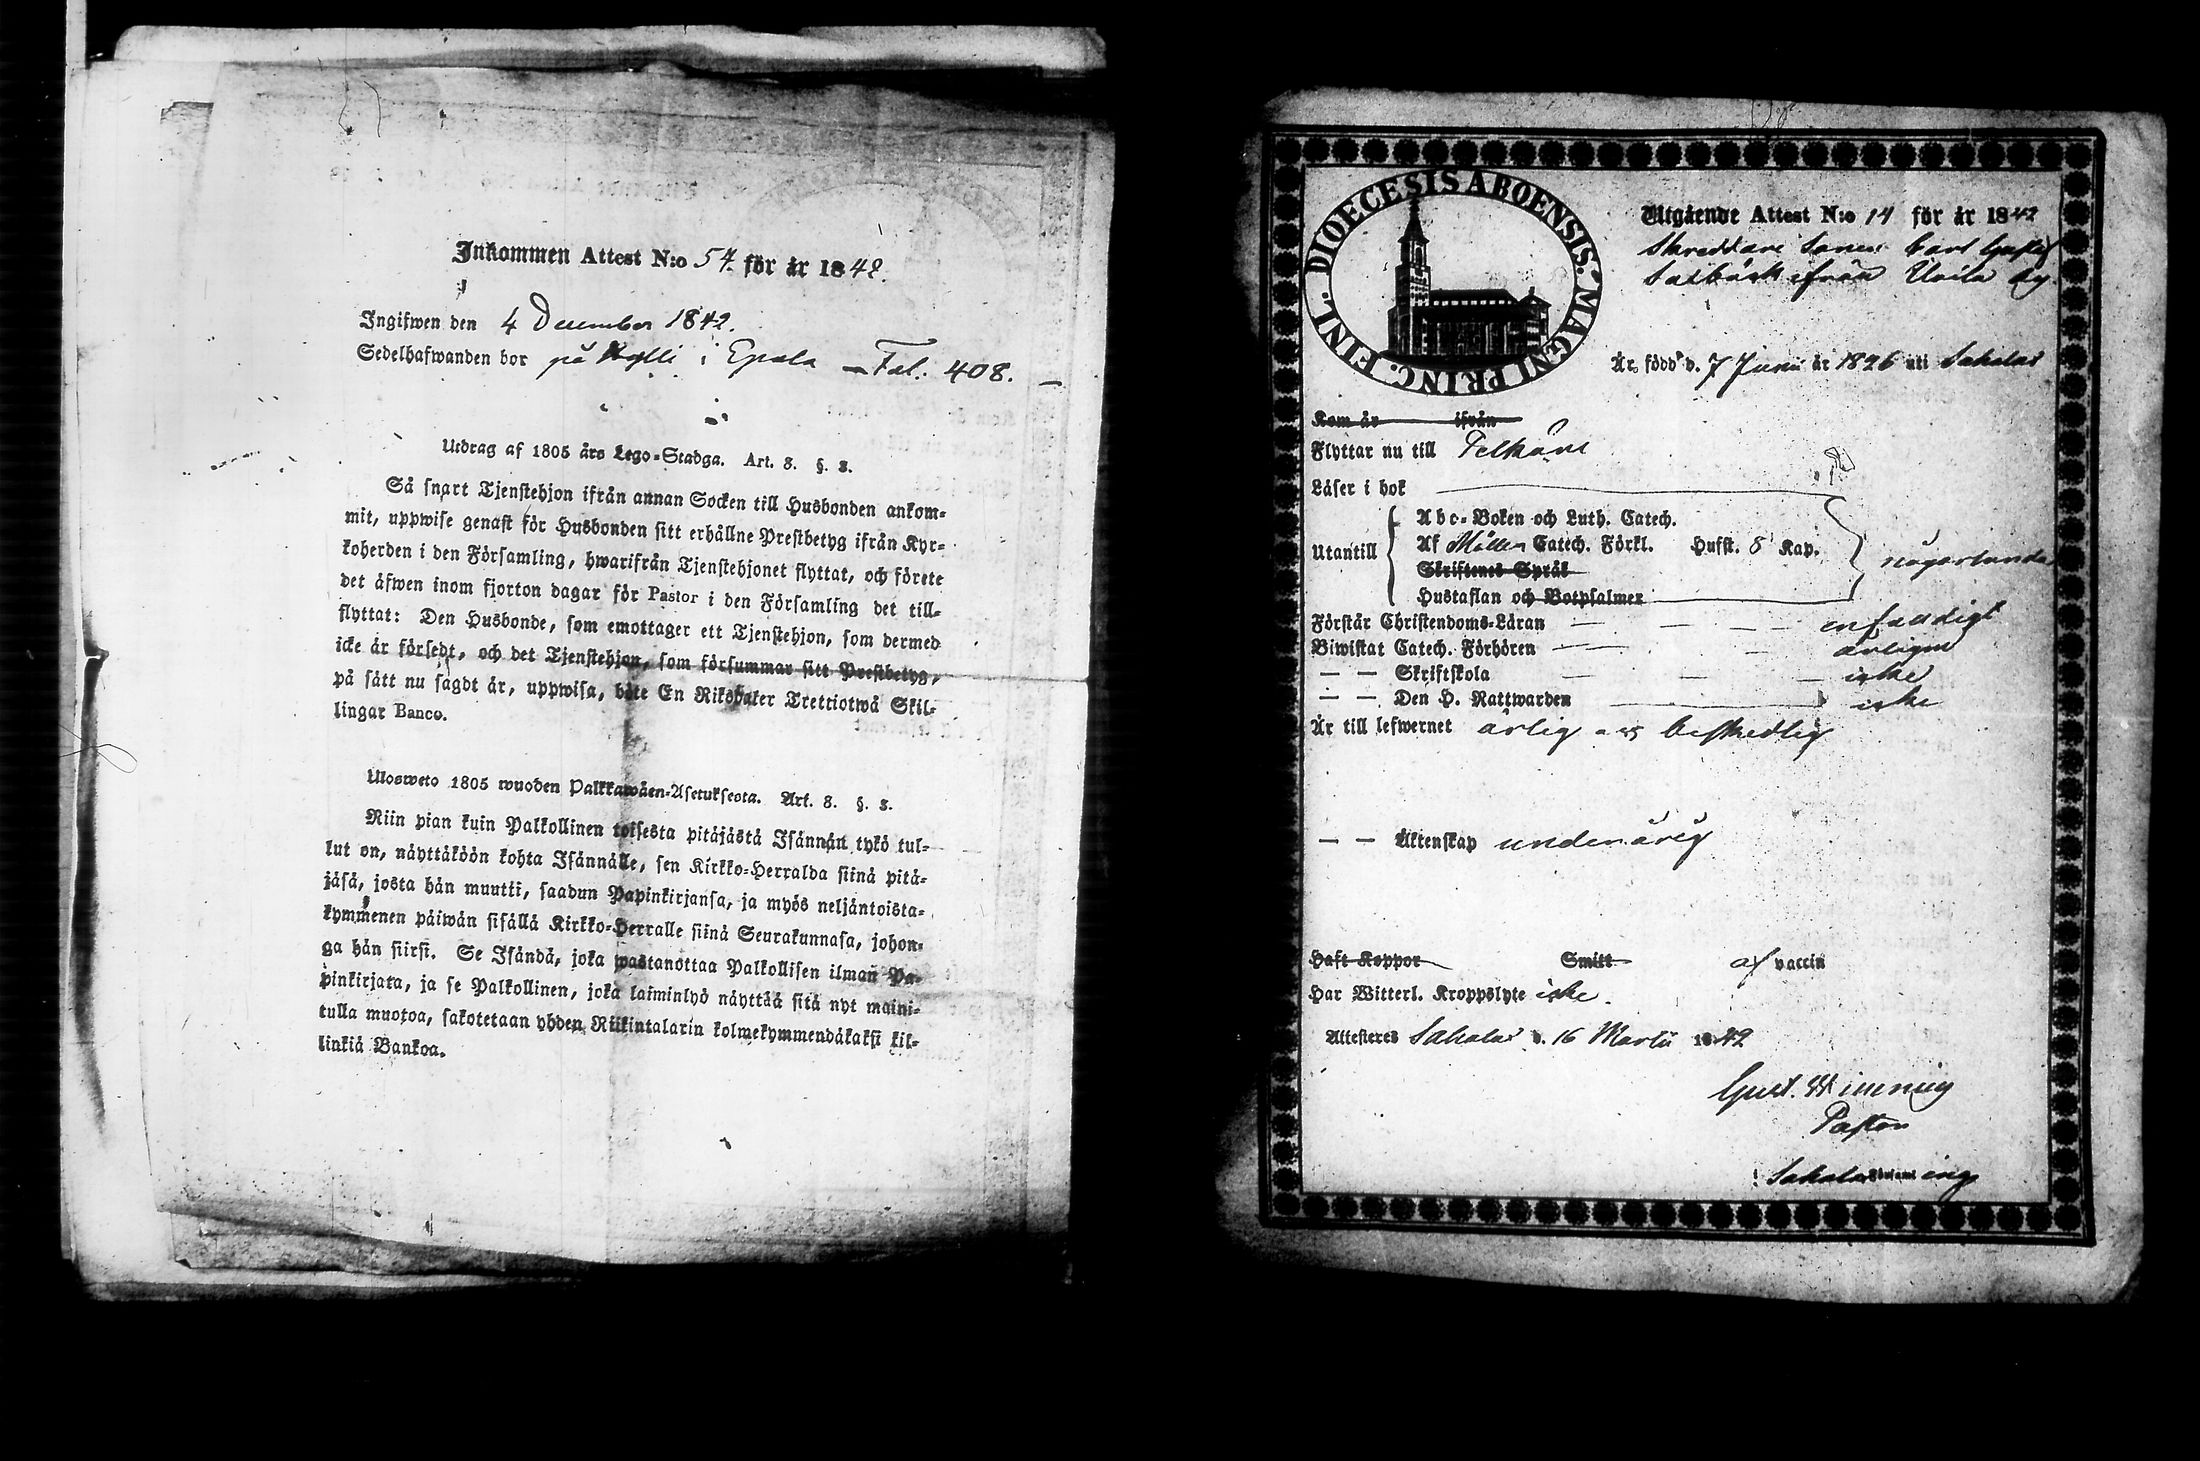 Inkommen Attest N:o 54. för år 1842.
Ingifwen den 4 December 1842.
Sedelhafwanden bor på Kylli i Epala — Fol. 408. —
Utdrag af 1805 års Lego-Stadga. Art. 8. §. 3.
Så snart Tjenstehjon ifrån annan Socken till Husbonden ankom-
mit, uppwise genast för Husbonden sitt erhållne Prestbetyg ifrån Kyr-
koherden i den Församling, hwarifrån Tjenstehjonet flyttat, och förete
det äfwen inom fjorton dagar för Pastor i den Församling det till-
flyttat: Den Husbonde, som emottager ett Tjenstehjon, som dermed
icke är försedt, och det Tjenstehjon, som försummar sitt Prestbetyg,
på sätt nu sagdt är, uppwisa, böte En Riksdaler Trettiotwå Skil-
lingar Banco.
Ulosweto 1805 wuoden Palkkawäen-Asetuksesta. Art. 8. §. 3.
Niin pian kuin Palkollinen toisesta pitäjästä Isännän tykö tul-
lut on, näyttäköön kohta Isännälle, sen Kirkko-Herralda siinä pitä-
jäsä, josta hän muutti, saadun Papinkirjansa, ja myös neljäntoista-
kymmenen päiwän sisällä Kirkko-Herralle siinä Seurakunnasa, johon-
ga hän siirsi. Se Isändä, joka wastanottaa Palkollisen ilman Pa-
pinkirjata, ja se Palkollinen, joka laiminlyö näyttää sitä nyt maini-
tulla muotoa, sakotetaan yhden Riikintalarin kolmekymmendäkaksi kil-
linkiä Bankoa.
DIOECESIS ABOENSIS. MAGNI PRINC. FINL.
Utgående Attest N:o 14 för år 1842
Skreddare Sonen Carl Gustaf
ifrån Uoila By
Är född d. 7 Junii år 1826 uti Sahalax
Kom år ifrån
Flyttar nu till Pelkäne
Läser i bok
Abc-Boken och Luth. Catech.
Utantill Af Möllers Catech. Förkl. Husst. 8 Kap. någorlunda
Skriftenes Språk
Hustaflan och Botpsalmer
Förstår Christendoms-Läran — — — enfaldigt
Biwistat Catech. Förhören — — årligen
— — Skriftskola — — — icke
— — Den H. Nattwarden icke
Är till lefwernet ärlig och beskedlig
— — Äktenskap underårig
Haft Koppor Smitt af vaccin
Har Witterl. Kroppslyte icke.
Attesteras Sahalax d. 16 Martii 1842
Gust. Winning
Pastor
i Sahalax Församling